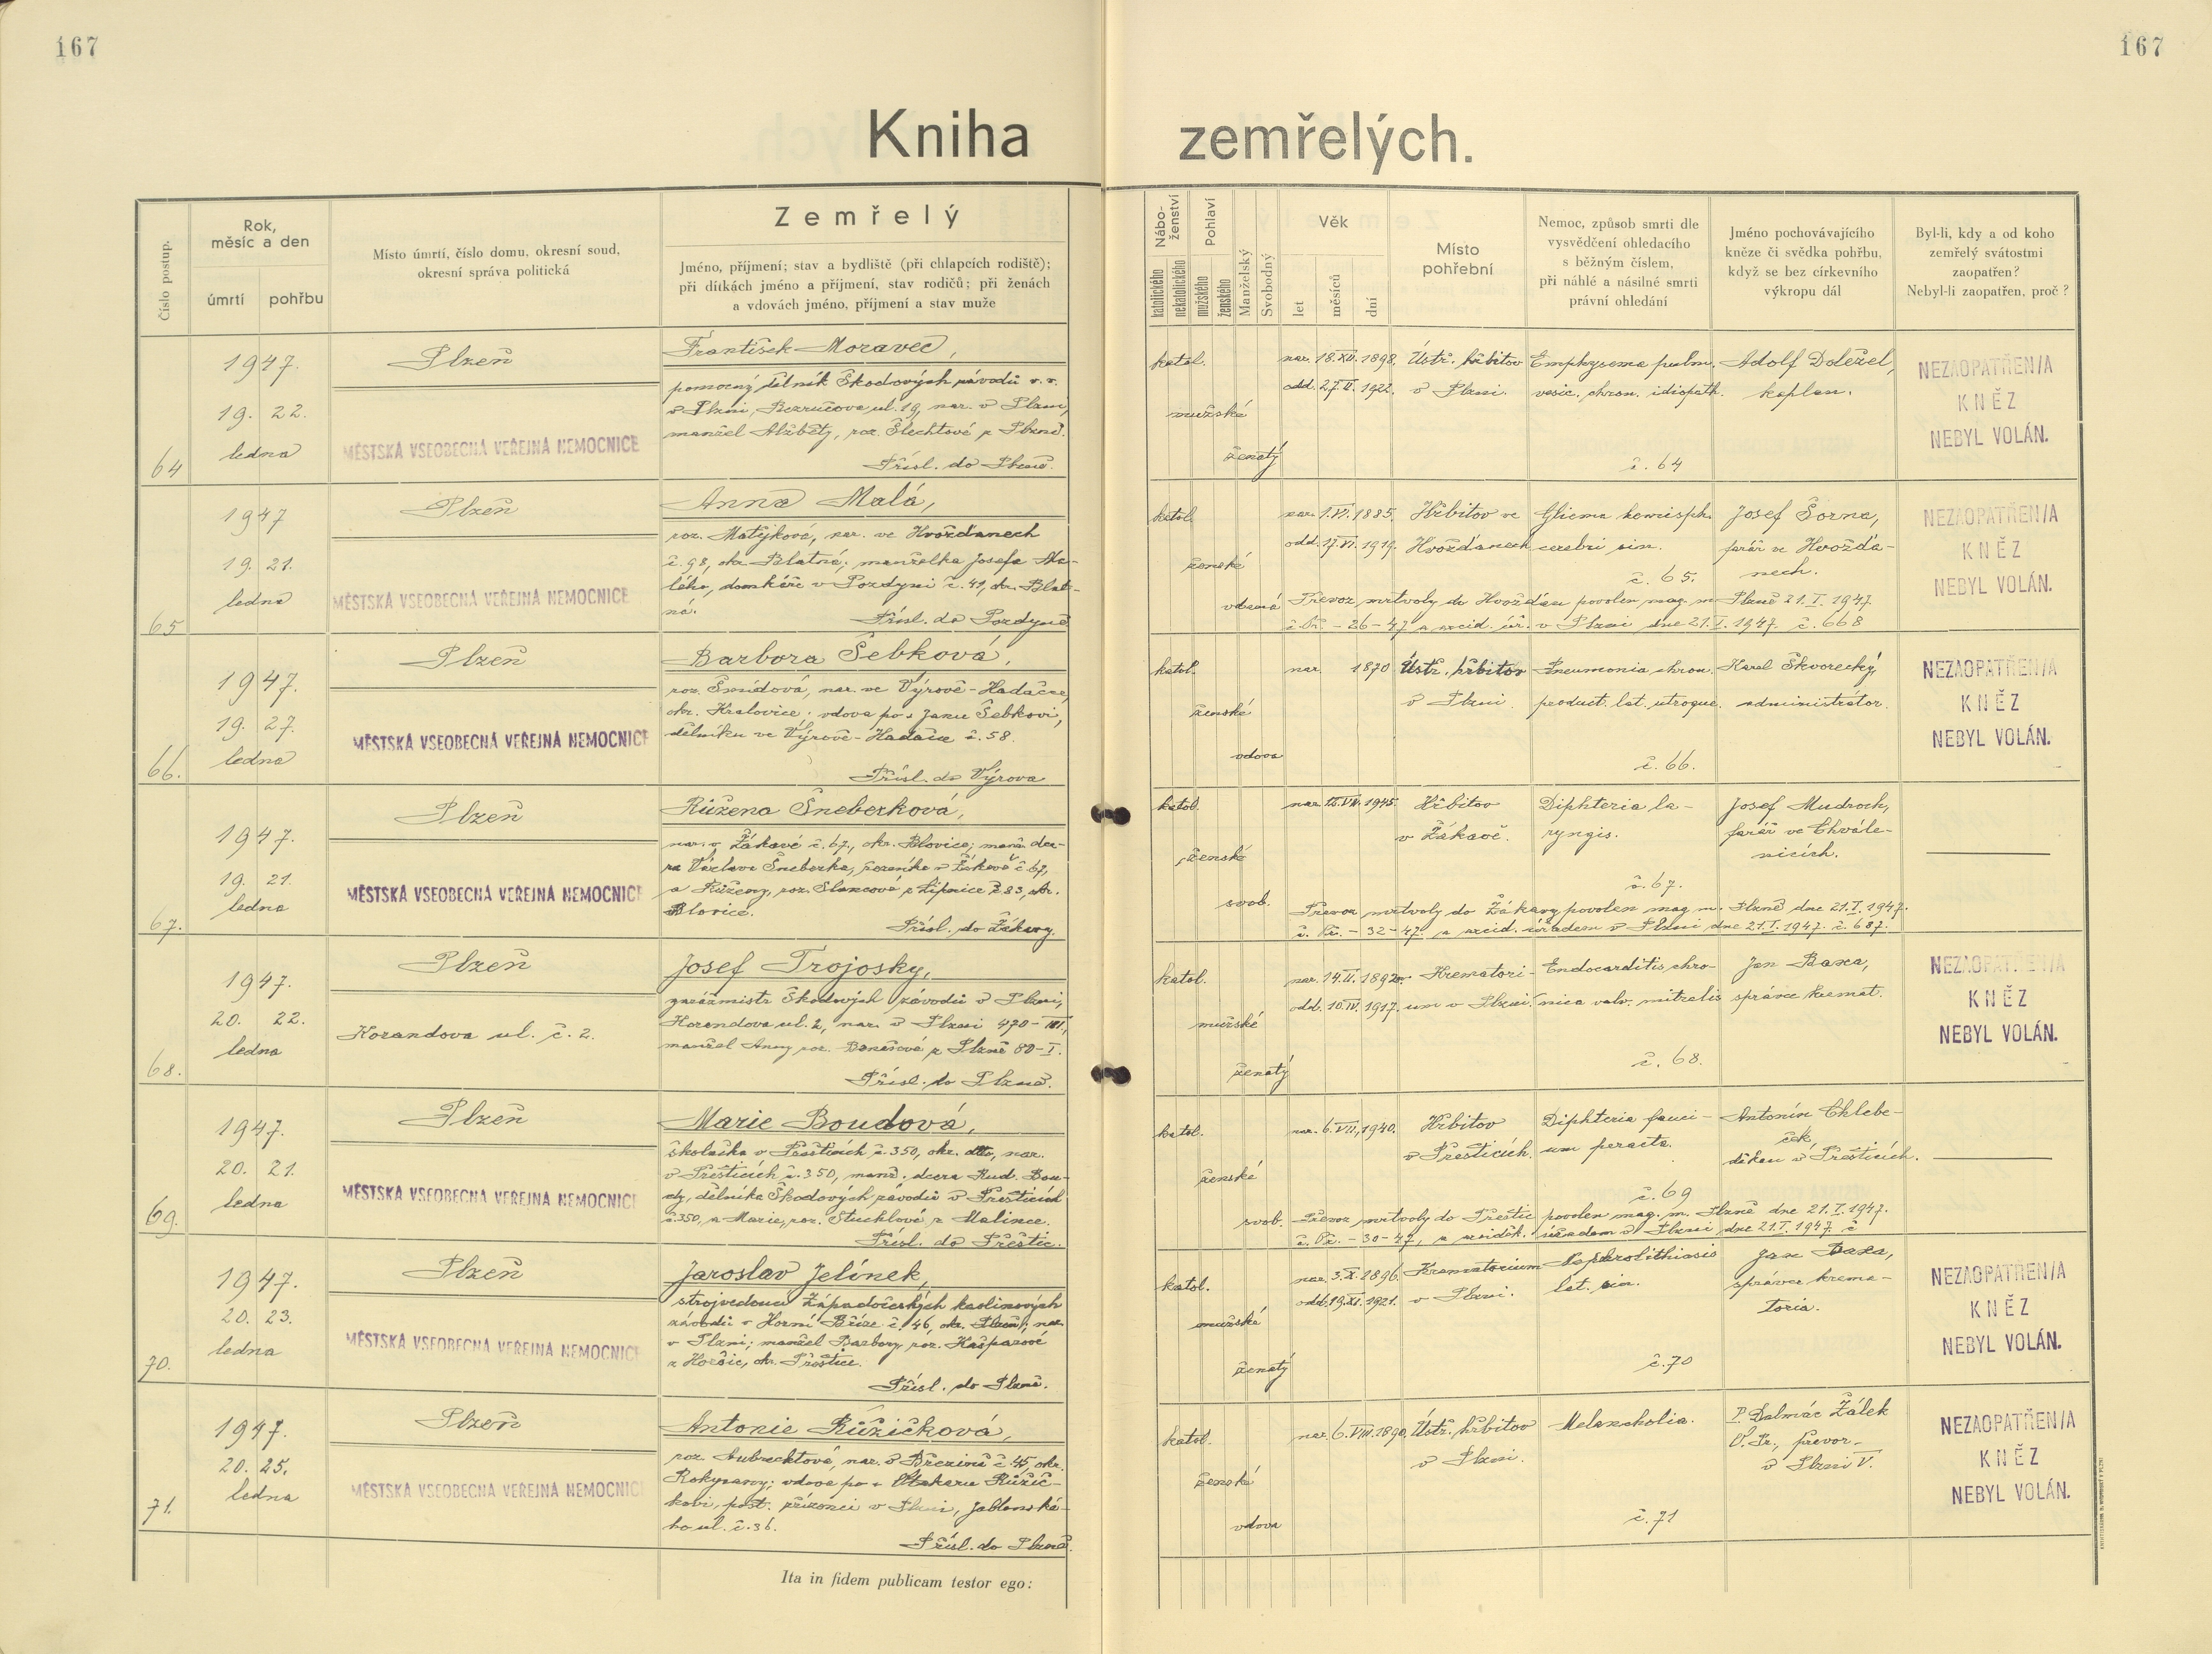 167
167
Kniha zemřelých.
Číslo postup.
Rok, měsíc a den
úmrtí
pohřbu
Místo úmrtí, číslo domu, okresní soud,
okresní správa politická
Zemřelý
Jméno, příjmení; stav a bydliště (při chlapcích rodiště);
při dítkách jméno a příjmení, stav rodičů; při ženách
a vdovách jméno, příjmení a stav muže
Nábo-ženství
katolického
nekatolického
Pohlaví
mužského
ženského
Manželský
Svobodný
Věk
let
měsíců
dní
Místo
pohřební
Nemoc, způsob smrti dle
vysvědčení ohledacího
s běžným číslem,
při náhlé a násilné smrti
právní ohledání
Jméno pochovávajícího
kněze či svědka pohřbu,
když se bez církevního
výkropu dál
Byl-li, kdy a od koho
zemřelý svátostmi
zaopatřen?
Nebyl-li zaopatřen, proč?
64
1947.
19. 22.
ledna
Plzeň
MĚSTSKÁ VŠEOBECNÁ VEŘEJNÁ NEMOCNICE
František Moravec,
pomocný dělník Škodových závodů v. v.
v Plzni, Bezručova ul. 19, nar. v Plzni,
manžel Alžběty, roz. Šlechtové z Plzně.
Přísl. do Plzně.
katol.
mužské
ženatý
nar. 18.XII.1898.
odd. 27.II.1922.
Ústř. hřbitov
v Plzni.
Emphysema pulm.
vesic. chron. idiopath.
č. 64
Adolf Doležel,
kaplan.
NEZAOPATŘEN/A
KNĚZ
NEBYL VOLÁN.
65
1947
19. 21.
ledna
Plzeň
MĚSTSKÁ VŠEOBECNÁ VEŘEJNÁ NEMOCNICE
Anna Malá,
roz. Matýková, nar. ve Hvožďanech
č. 98, okr. Blatná; manželka Josefa Ma-
lého, domkáře v Pozdyni č. 41, okr. Blat-
ná.
Přísl. do Pozdyně
katol.
ženské
vdaná
nar. 1.VI.1885.
odd. 17.VI.1919.
Hřbitov ve
Hvožďanech
Glioma hemisph.
cerebri sin.
č. 65.
Josef Šorna,
farář ve Hvožďa-
nech.
Převoz mrtvoly do Hvožďan povolen mag. m. Plzně 21.I.1947.
č. Pr. - 26 - 47 a uřed. úř. v Plzni dne 21.I.1947. č. 668
NEZAOPATŘEN/A
KNĚZ
NEBYL VOLÁN.
66.
1947.
19. 27.
ledna
Plzeň
MĚSTSKÁ VŠEOBECNÁ VEŘEJNÁ NEMOCNICE
Barbora Šebková,
roz. Šmídová, nar. ve Výrově-Hadačce,
okr. Kralovice; vdova po + Janu Šebkovi,
dělníku ve Výrově-Hadačce č. 58.
Přísl. do Výrova
katol.
ženské
vdova
nar. 1870
Ústř. hřbitov
v Plzni.
Pneumonia chron.
product. lat. utroque.
č. 66.
Karel Škvorecký,
administrátor.
NEZAOPATŘEN/A
KNĚZ
NEBYL VOLÁN.
67.
1947.
19. 21.
ledna
Plzeň
MĚSTSKÁ VŠEOBECNÁ VEŘEJNÁ NEMOCNICE
Růžena Šneberková,
nar. v Žákavé č. 67., okr. Blovice; manž. dce-
ra Václava Šneberka, v Žákavě č. 67,
a Růženy, roz. Slancové z Lipnice č. 83, okr.
Blovice.
Přísl. do Žákavy.
katol.
ženské
svob.
1945.
Hřbitov
v Žákavě.
Diphteria la-
ryngis.
č. 67.
Josef Mudroch,
farář ve Chvále-
nicích.
Převoz mrtvoly do Žákavy povolen mag. m. Plzně dne 21.I.1947.
č. Pr. - 32 - 47. a úřadem v Plzni dne 21.I.1947. č. 687.
68.
1947.
20. 22.
ledna
Plzeň
Korandova ul. č. 2.
Josef Trojosky,
Škodových závodů v Plzni,
Korandova ul. 2, nar. v Plzni 470-III.,
manžel Anny roz. Benešové z Plzně 80-I.
Přísl. do Plzně.
katol.
mužské
ženatý
nar. 14.II.1892.
odd. 10.IV.1917.
Krematori-
um v Plzni.
Endocarditis chro-
nica valv. mitralis
č. 68.
Jan Baxa,
správce kremat.
NEZAOPATŘEN/A
KNĚZ
NEBYL VOLÁN.
69.
1947.
20. 21.
ledna
Plzeň
MĚSTSKÁ VŠEOBECNÁ VEŘEJNÁ NEMOCNICE
Marie Boudová,
školačka v Přešticích č. 350, okr. dtto, nar.
v Přešticích č. 350, manž. dcera Rud. Bou-
dy, dělníka Škodových závodů v Přešticích
č. 350, a Marie, roz. Stucklové z Malince.
Přísl. do Přeštic.
katol.
ženské
svob.
nar. 6.VII.1940.
Hřbitov
v Přešticích.
Diphteria fauci-
um peracta.
č. 69
Antonín Chlebe-
ček,
děkan v Přešticích.
Převoz mrtvoly do Přeštic povolen mag. m. Plzně dne 21.I.1947.
č. Pr. - 30 - 47, a úřadem v Plzni dne 21.I.1947. č
70.
1947.
20. 23.
ledna
Plzeň
MĚSTSKÁ VŠEOBECNÁ VEŘEJNÁ NEMOCNICE
Jaroslav Jelínek,
strojvedoucí Západočeských kaolinových
závodů v Horní Bříze č. 46, okr. Plzeň; nar.
v Plzni; manžel Barbory, roz. Kašparové
z Horšic, okr. Přeštice.
Přísl. do Plzně.
katol.
mužské
ženatý
nar. 3.X.1896.
odd. 19.XI.1921.
Krematorium
v Plzni.
Nephrolithiasis
lat. sin.
č. 70
Jan Baxa,
správce krema-
toria.
NEZAOPATŘEN/A
KNĚZ
NEBYL VOLÁN.
71.
1947.
20. 25.
ledna
Plzeň
MĚSTSKÁ VŠEOBECNÁ VEŘEJNÁ NEMOCNICE
Antonie Růžičková,
roz. Aubrechtová, nar. v Březině č. 45, okr.
Rokycany; vdova po + Otakaru Růžič-
kovi, pošt. zřízenci v Plzni, Jablonské-
ho ul. č. 36.
Přísl. do Plzně.
katol.
ženské
vdova
nar. 6.VIII.1890.
Ústř. hřbitov
v Plzni.
Melancholia.
č. 71
P. Dalmác Žálek
O. Pr., převor
v Plzni V.
NEZAOPATŘEN/A
KNĚZ
NEBYL VOLÁN.
Ita in fidem publicam testor ego: